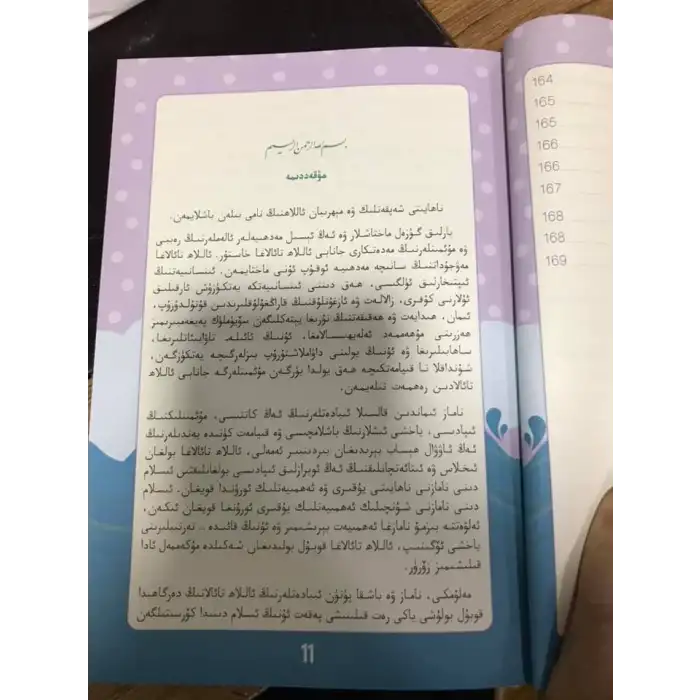 بسم الله الرحمن الرحيم
مۇقەددىمە
ناھايىتى شەپقەتلىك ۋە مېھرىبان ئاللاھنىڭ نامى بىلەن باشلايمەن.
بارلىق گۈزەل ماختاشلار ۋە ئەڭ ئېسىل مەدھىيەلەر ئالەملەرنىڭ رەببى
ۋە مۇئمىنلەرنىڭ مەدەتكارى جانابى ئاللاھ تائالاغا خاستۇر. ئاللاھ تائالاغا
مەۋجۇداتنىڭ سانىچە مەدھىيە ئوقۇپ ئۇنى ماختايمەن. ئىنسانىيەتنىڭ
ئىپتىخارلىق ئۈلگىسى، ھەق دىننى ئىنسانىيەتكە يەتكۈزۈش ئارقىلىق
ئۇلارنى كۇفرى، زالالەت ۋە ئازغۇنلۇقنىڭ قاراڭغۇلۇقلىرىدىن قۇتۇلدۇرۇپ،
ئىمان، ھىدايەت ۋە ھەقىقەتنىڭ نۇرىغا يېتەكلىگەن سۆيۈملۈك پەيغەمبىرىمىز
ھەزرىتى مۇھەممەد ئەلەيھىسسالامغا، ئۇنىڭ ئائىلە تاۋابىئاتلىرىغا،
ساھابىلىرىغا ۋە ئۇنىڭ يولىنى داۋاملاشتۇرۇپ بىزلەرگىچە يەتكۈزگەن،
شۇنداقلا تا قىيامەتكىچە ھەق يولدا يۈرگەن مۇئمىنلەرگە جانابى ئاللاھ
تائالادىن رەھمەت تىلەيمەن.
ناماز ئىماندىن قالسىلا ئىبادەتلەرنىڭ ئەڭ كاتتىسى، مۇئمىنلىكنىڭ
ئىپادىسى، ياخشى ئىشلارنىڭ باشلامچىسى ۋە قىيامەت كۈنىدە بەندىلەرنىڭ
ئەڭ ئاۋۋال ھېساب بېرىدىغان بىردىنبىر ئەمەلى، ئاللاھ تائالاغا بولغان
ئىخلاس ۋە ئىتائەتچانلىقنىڭ ئەڭ ئوبرازلىق ئىپادىسى بولغانلىقتىن ئىسلام
دىنى نامازنى ناھايىتى يۇقىرى ۋە ئەھمىيەتلىك ئورۇندا قويغان. ئىسلام
دىنى نامازنى شۇنچىلىك ئەھمىيەتلىك يۇقىرى ئورۇنغا قويغان ئىكەن،
ئەلۋەتتە بىزمۇ نامازغا ئەھمىيەت بېرىشىمىز ۋە ئۇنىڭ قائىدە - تەرتىپلىرىنى
ياخشى ئۆگىنىپ، ئاللاھ تائالاغا قوبۇل بولىدىغان شەكىلدە مۇكەممەل ئادا
قىلىشىمىز زۆرۈر.
مەلۇمكى، ناماز ۋە باشقا پۈتۈن ئىبادەتلەرنىڭ ئاللاھ تائالانىڭ دەرگاھىدا
قوبۇل بولۇشى ياكى رەت قىلىنىشى پەقەت ئۇنىڭ ئىسلام دىنىدا كۆرسىتىلگەن
11
164
165
165
166
166
167
168
168
169